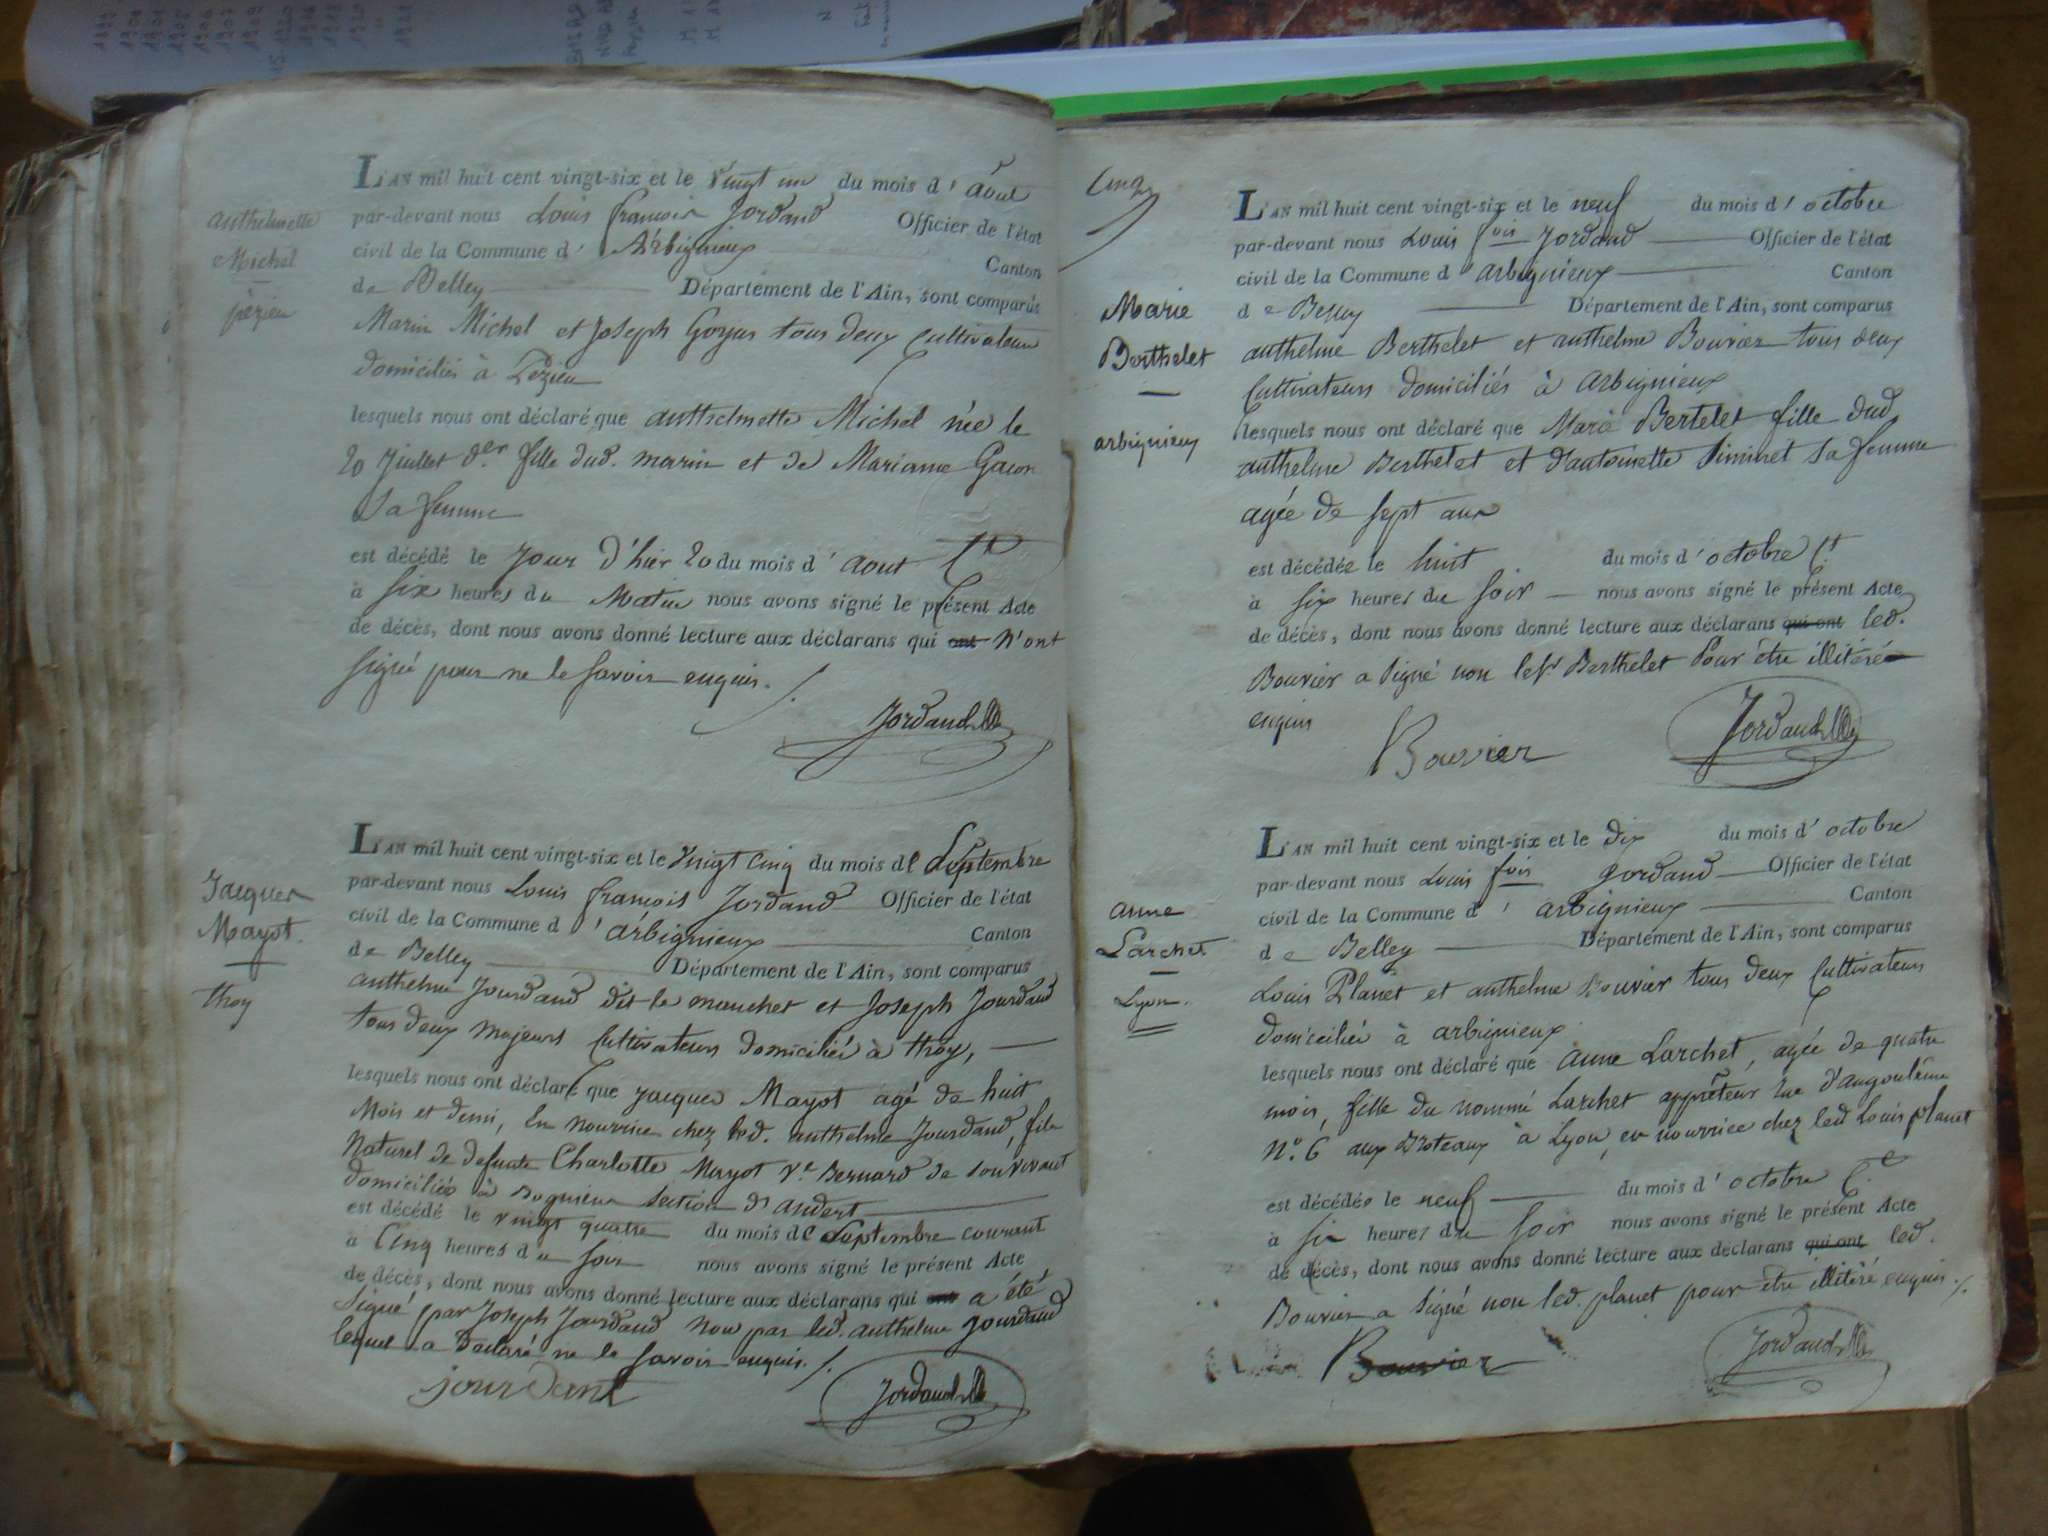 anthelmette
Michel
pézieu
L'AN mil huit cent vingt-six et le vingt un du mois d' août
par-devant nous Louis françois Jordand Officier de l'état
civil de la Commune d' Arbignieux Canton
de Belley Département de l'Ain, sont comparus
Marin Michel et Joseph Goyas tous deux Cultivateurs
domiciliés à Pezieu
lesquels nous ont déclaré que anthelmette Michel née le
20 Juillet der fille dud. marin et de Marianne Gacon
sa femme
est décédé le Jour d'hier 20 du mois d' aout Ct
à six heures du Matin nous avons signé le présent Acte
de décès, dont nous avons donné lecture aux déclarans qui ont n'ont
signé pour ne le savoir enquis.
Jordand
Jacques
Mayot
thoy
L'AN mil huit cent vingt-six et le vingt cinq du mois de Septembre
par-devant nous Louis françois Jordand Officier de l'état
civil de la Commune d' arbignieux Canton
de Belley Département de l'Ain, sont comparus
anthelme Jourdand dit le manchet et Joseph Jourdand
tous deux majeurs Cultivateurs domiciliés à thoy,
lesquels nous ont déclaré que jacques Mayot agé de huit
mois et demi, en nourrice chez led. anthelme Jourdand, fils
naturel de defunte Charlotte Mayot ve Bernard de son vivant
domiciliée à Bognieu section d'andert
est décédé le vingt quatre du mois de Septembre courant
à Cinq heures du soir nous avons signé le présent Acte
de décès, dont nous avons donné lecture aux déclarans qui ont a été
signé par Joseph Jourdand non par led. anthelme Jourdand
lequel a declaré ne le savoir enquis.
jourdant
Jordand
Cinq
Marie
Berthelet
arbignieux
L'AN mil huit cent vingt-six et le neuf du mois d' octobre
par-devant nous Louis fois Jordand Officier de l'état
civil de la Commune d' arbignieux Canton
de Belley Département de l'Ain, sont comparus
anthelme Berthelet et anthelme Bouvier tous deux
Cultivateurs domiciliés à arbignieux
lesquels nous ont déclaré que Marie Bertelet fille dud.
anthelme Berthelet et d'antoinette sa femme
agée de sept ans
est décédée le huit du mois d' octobre Ct
à six heures du soir nous avons signé le présent Acte
de décès, dont nous avons donné lecture aux déclarans qui ont led.
Bouvier a signé non led. Berthelet pour être illitéré
enquis
Bouvier
Jordand
anne
Larchet
Lyon.
L'AN mil huit cent vingt-six et le dix du mois d' octobre
par-devant nous Louis fois Jordand Officier de l'état
civil de la Commune d' arbignieux Canton
de Belley Département de l'Ain, sont comparus
Louis Planet et anthelme Bouvier tous deux Cultivateurs
domiciliés à arbignieux
lesquels nous ont déclaré que anne Larchet, agée de quatre
mois, fille du nommé Larchet apprêteur rue d'angoulême
N.o 6 aux Broteaux à Lyon, en nourrice chez led Louis planet
est décédée le neuf du mois d' octobre Ct
à six heures du soir nous avons signé le présent Acte
de décès, dont nous avons donné lecture aux déclarans qui ont led.
Bouvier a signé non led. planet pour être illitéré enquis.
Bouvier
Jordand